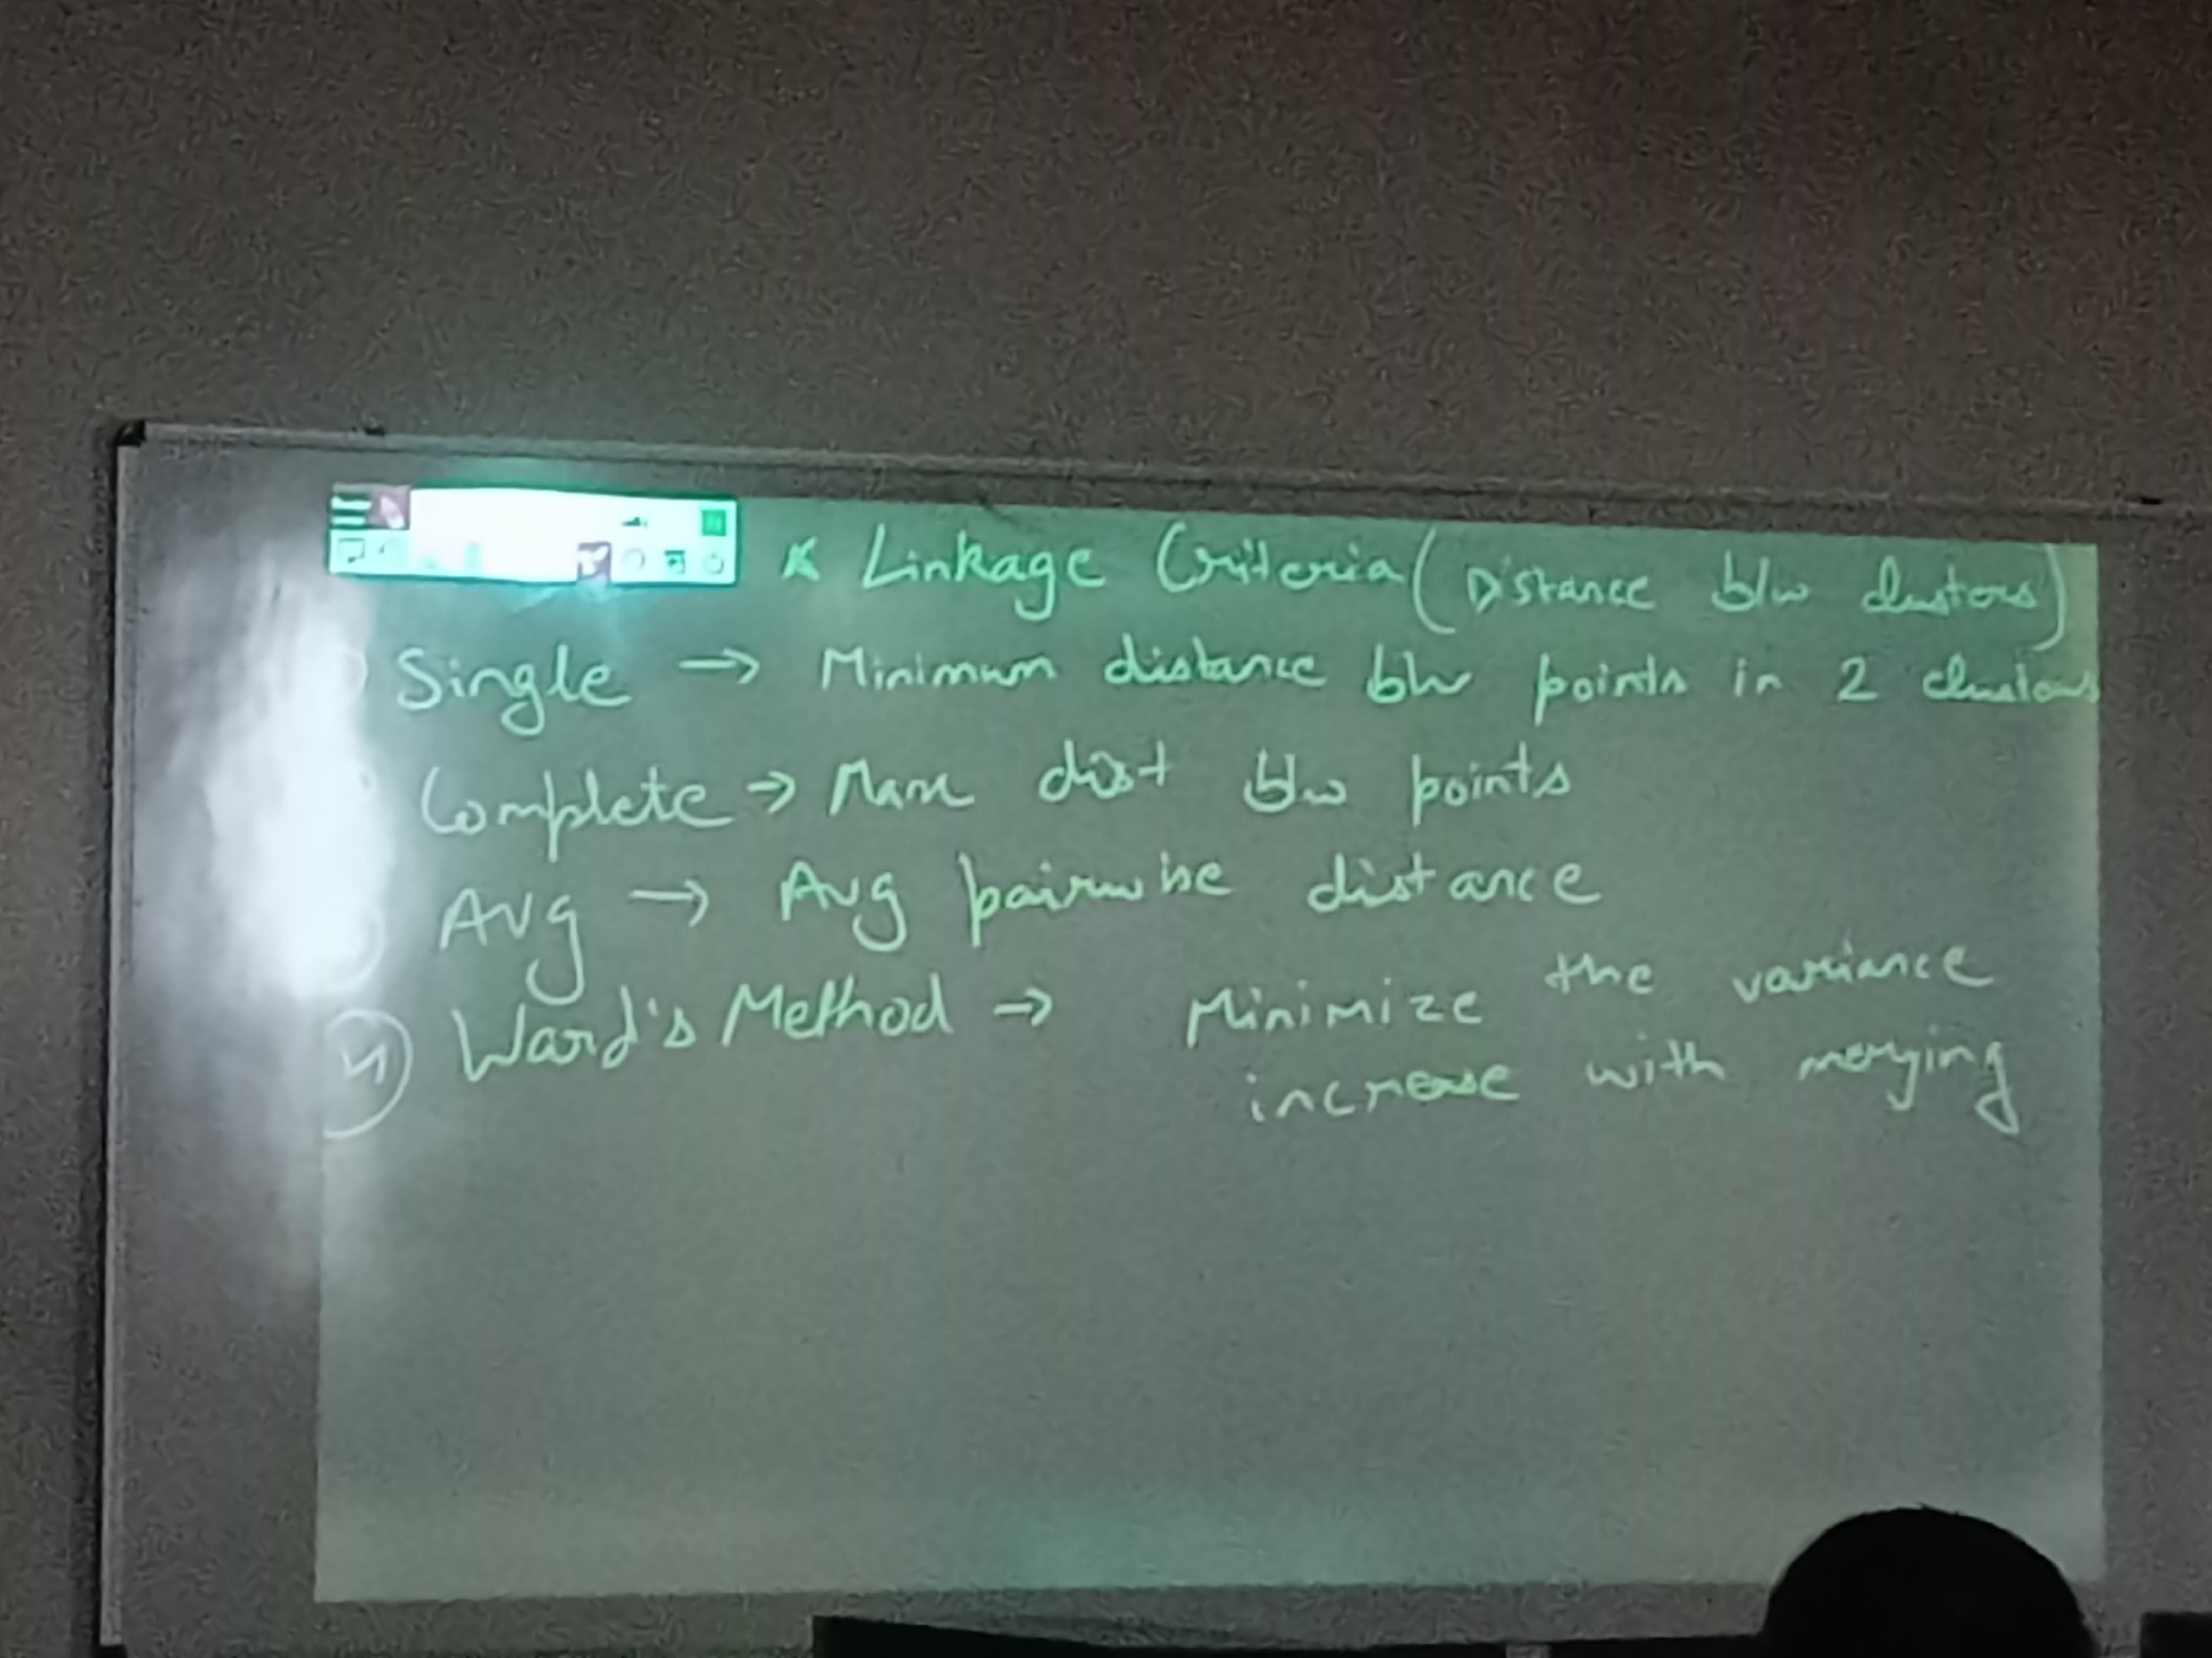 * Linkage Criteria (Distance b/w clusters)
Single → Minimum distance b/w points in 2 clusters
Complete → Max dist b/w points
Avg → Avg pairwise distance
4 Ward's Method → Minimize the variance
increase with merging